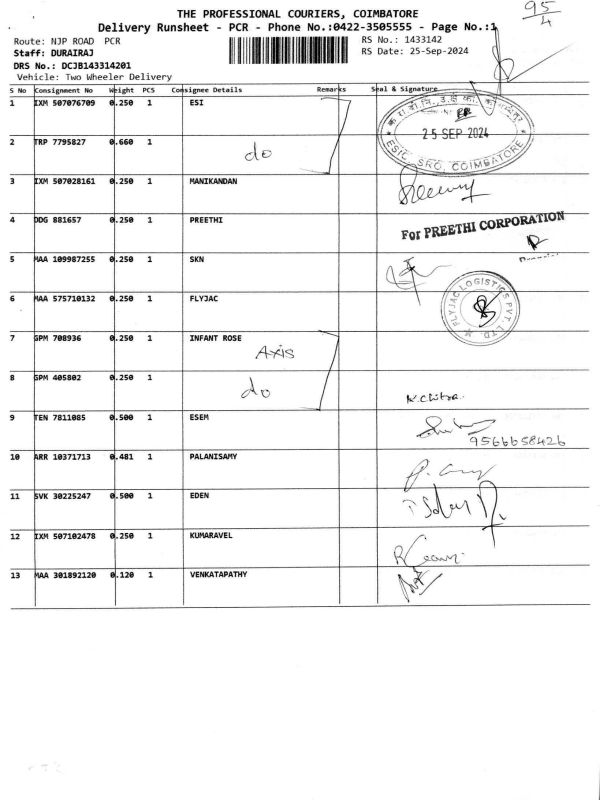 95
4
THE PROFESSIONAL COURIERS, COIMBATORE
Delivery Runsheet - PCR - Phone No.:0422-3505555 - Page No.:1
Route: NJP ROAD PCR
RS No.: 1433142
Staff: DURAIRAJ
RS Date: 25-Sep-2024
DRS No.: DCJB143314201
Vehicle: Two Wheeler Delivery
S No Consignment No Weight PCS Consignee Details Remarks Seal & Signature
1 IXM 507076709 0.250 1 ESI
25 SEP 2024
ESIC, SRO, COIMBATORE
2 TRP 7795827 0.660 1 do
3 IXM 507028161 0.250 1 MANIKANDAN
4 DDG 881657 0.250 1 PREETHI
For PREETHI CORPORATION
5 MAA 109987255 0.250 1 SKN
6 MAA 575710132 0.250 1 FLYJAC
FLYJAC LOGISTICS PVT. LTD.
7 GPM 708936 0.250 1 INFANT ROSE
Axis
8 GPM 405802 0.250 1 do
N.Chitra
9 TEN 7811085 0.500 1 ESEM
9566658426
10 ARR 10371713 0.481 1 PALANISAMY
11 SVK 30225247 0.500 1 EDEN
12 IXM 507102478 0.250 1 KUMARAVEL
13 MAA 301892120 0.120 1 VENKATAPATHY